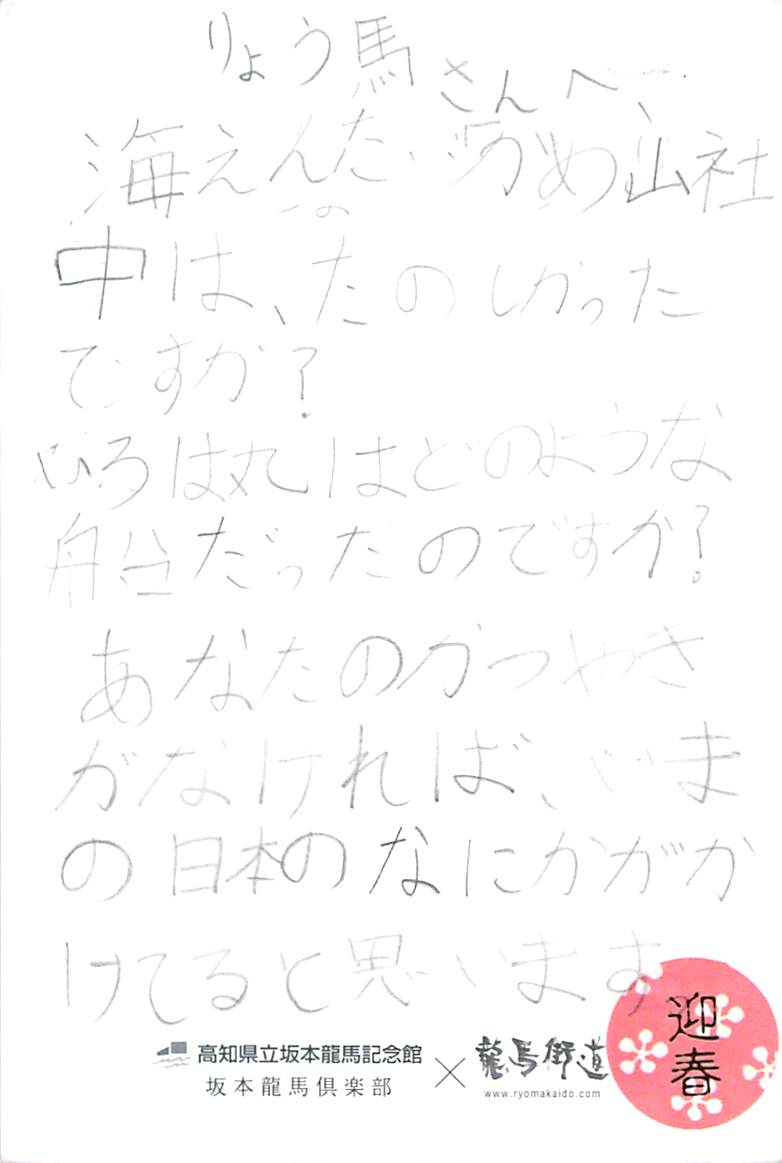 りょう馬さんへ、
海えんたいがめ山社
の
中は、たのしかった
ですか?
いろは丸はどのような
船だったのですか?
あなたのかつやき
がなければ、いま
の日本のなにかがか
けてると思います
高知県立坂本龍馬記念館
坂本龍馬倶楽部
×
龍馬街道
www.ryomakaido.com
迎春